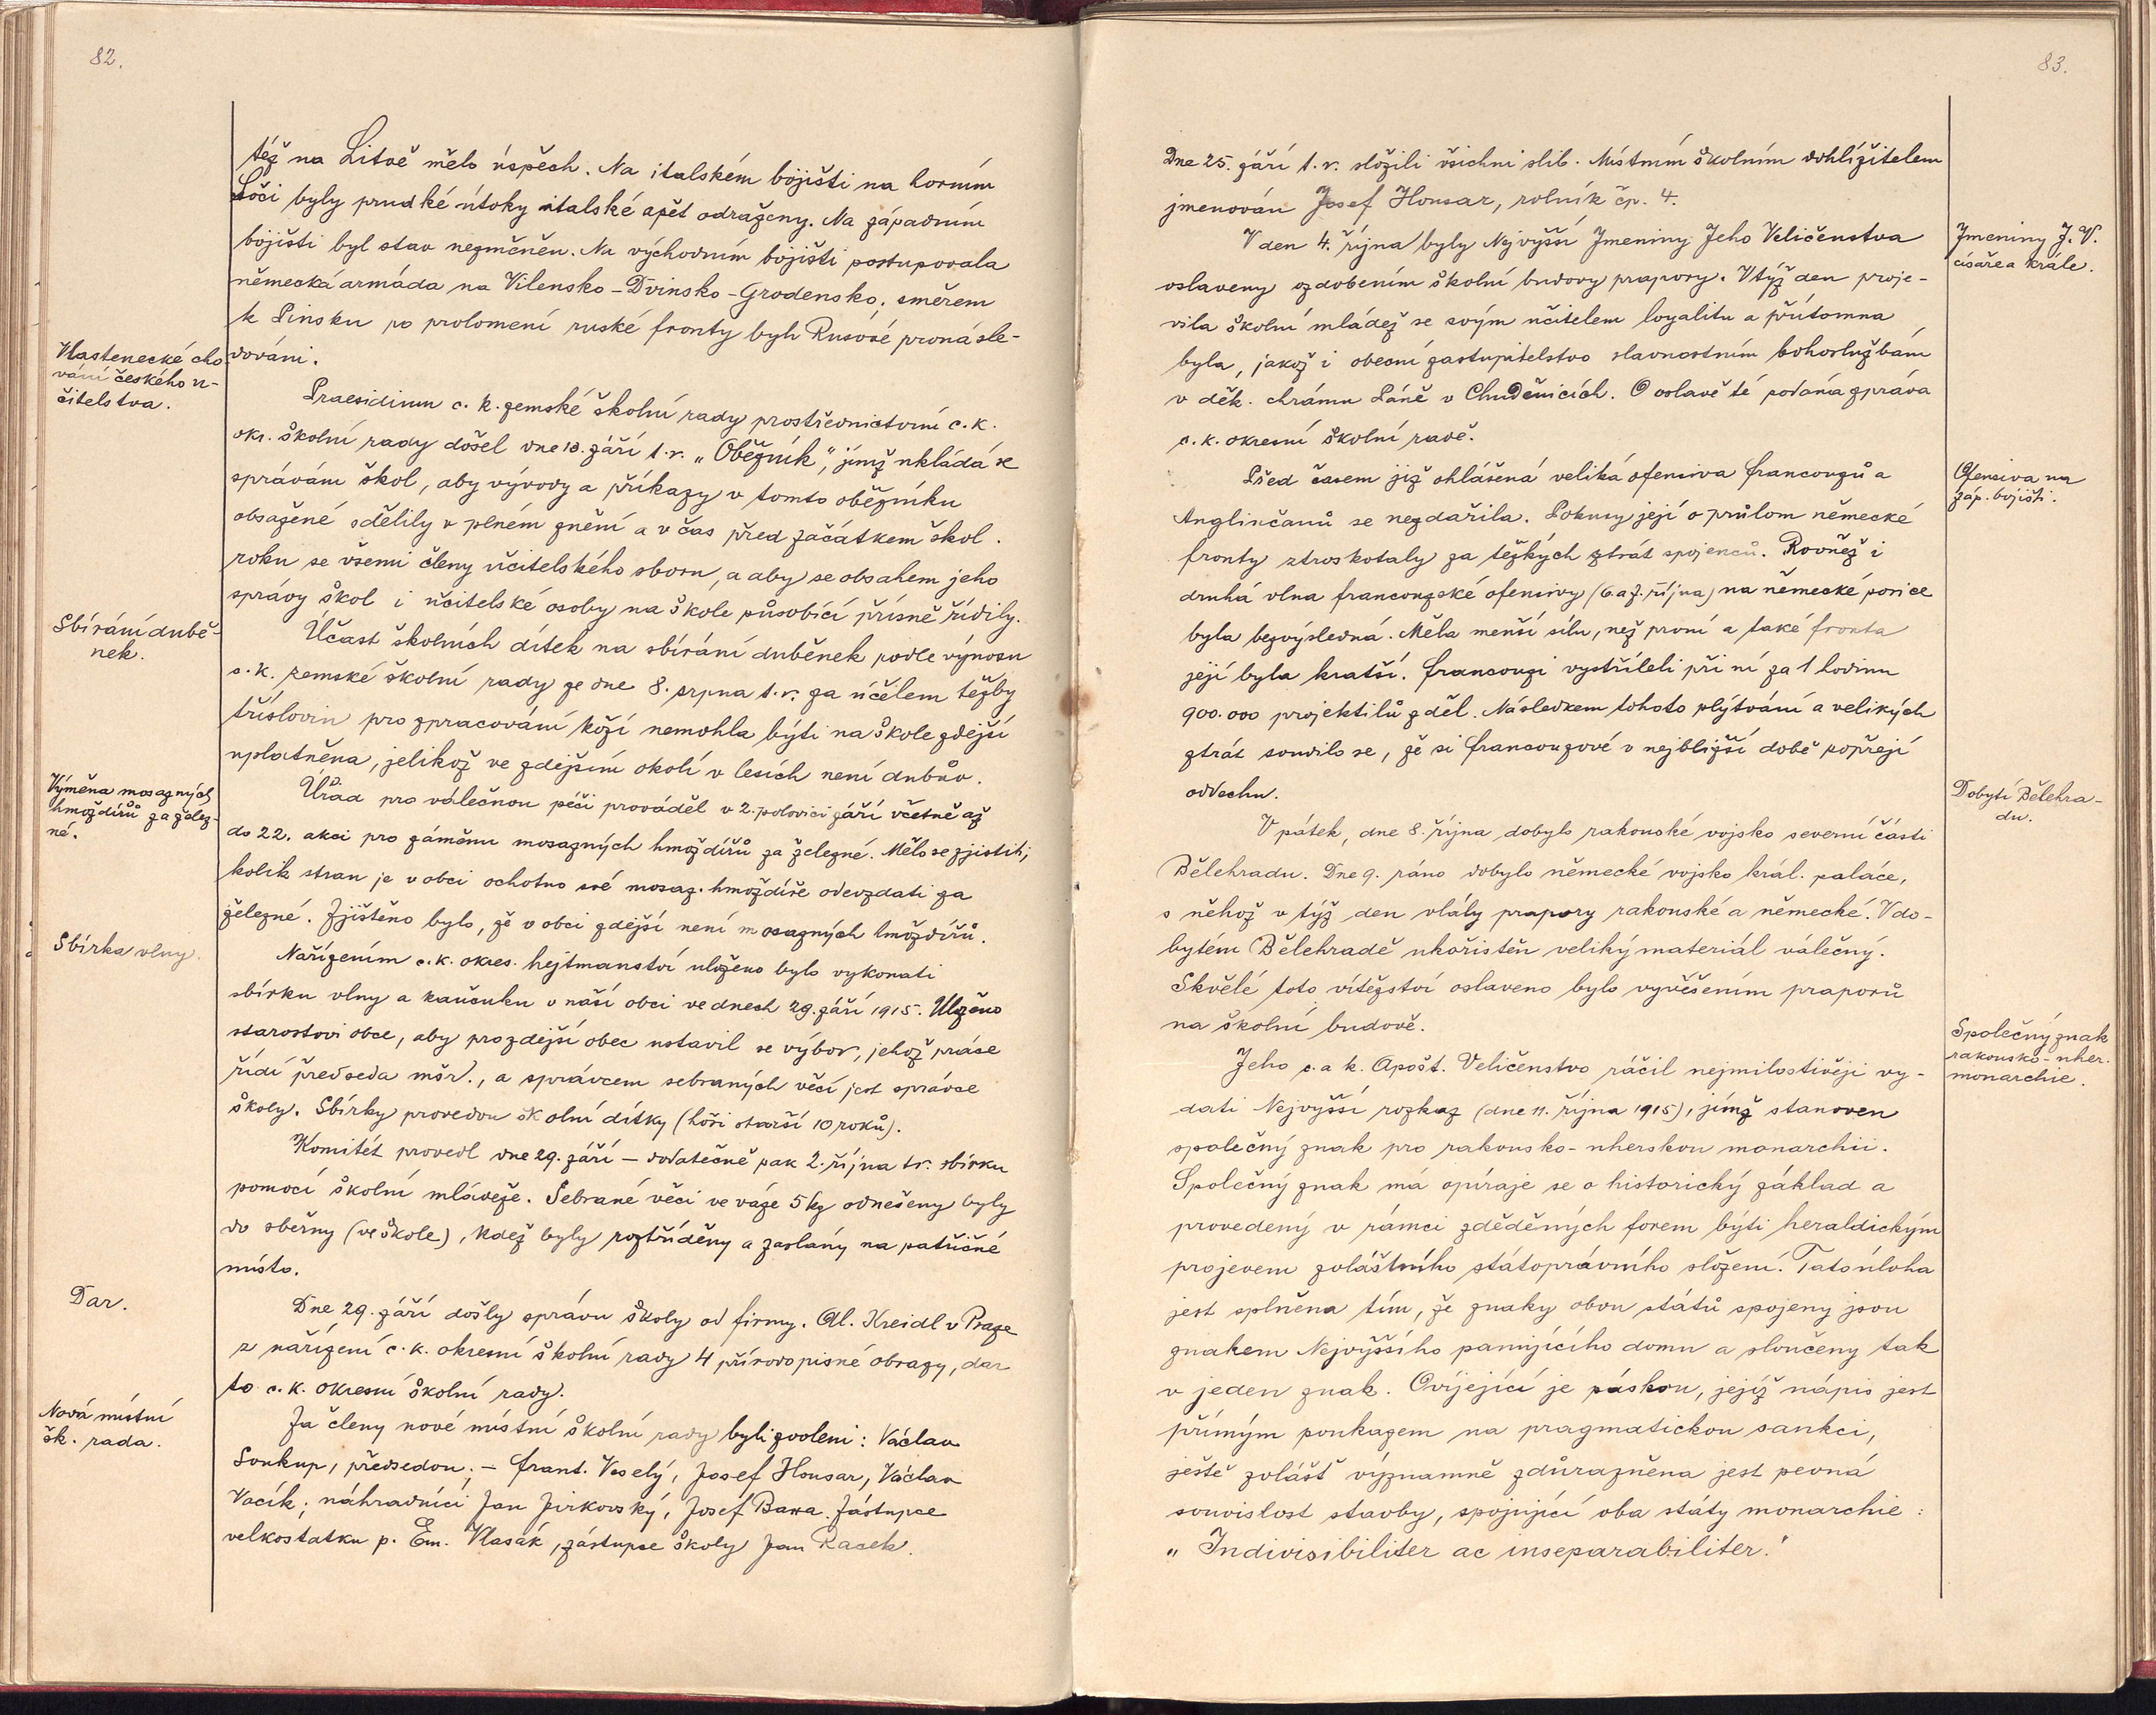 82.
též na Litvě mělo úspěch. Na italském bojišti na horním
Soči byly prudké útoky italské opět odraženy. Na západním
bojišti byl stav nezměněn. Na východním bojišti postupovala
německá armáda na Vilensko-Dvinsko-Grodensko, směrem
k Pinsku po prolomení ruské fronty byli Rusóvé pronásle-
dováni.
Vlastenecké cho-
vání českého u-
čitelstva.
Praesidium c. k. zemské školní rady prostřednictvím c. k.
okr. školní rady došel dne 18. září t. r. „Oběžník“, jímž ukládá se
správám škol, aby vývody a příkazy v tomto oběžníku
obsažené sdělily v plném znění a v čas před začátkem škol.
roku se všemi členy učitelského sboru, a aby se obsahem jeho
správy škol i učitelské osoby na škole působící přísně řídily.
Sbírání dubě-
nek.
Účast školních dítek na sbírání duběnek podle výnosu
c. k. zemské školní rady ze dne 8. srpna t. r. za účelem těžby
tříslovin pro zpracování koží nemohla býti na škole zdejší
uplatněna, jelikož ve zdejším okolí v lesích není dubův.
Výměna mosazných
hmoždířů za želez-
né.
Úřad pro válečnou péči prováděl v 2. polovici září včetně až
do 22. akci pro záměnu mosazných hmoždířů za železné. Mělo se zjistiti,
kolik stran je v obci ochotno své mosaz. hmoždíře odevzdati za
železné. Zjištěno bylo, že v obci zdejší není mosazných hmoždířů.
Sbírka vlny.
Nařízením c. k. okres. hejtmanství uloženo bylo vykonati
sbírku vlny a kaučuku v naší obci ve dnech 29. září 1915. Uloženo
starostovi obce, aby pro zdejší obec ustavil se výbor, jehož práce
řídí předseda mšr., a správcem sebraných věcí jest správce
školy. Sbírky provedou školní dítky (hoši starší 10 roků).
Komitét provedl dne 29. září – dodatečně pak 2. října t.r. sbírku
pomocí školní mládeže. Sebrané věci ve váze 5 kg odnešeny byly
do sběrny (ve škole), kdež byly roztříděny a zaslány na patřičné
místo.
Dar.
Dne 29. září došly správu školy od firmy. Al. Kreidl v Praze
z nařízení c. k. okresní školní rady 4 přírodopisné obrazy, dar
to c. k. okresní školní rady.
Nová místní
šk. rada.
Za členy nové místní školní rady byli zvoleni: Václav
Soukup, předsedou; – Frant. Veselý, Josef Housar, Václav
Vacík; náhradníci Jan Jirkovský, Josef Bawa. Zástupce
velkostatku p. Em. Vlasák, zástupce školy Jan Racek.
83.
Dne 25. září t. r. složili všichni slib. Místním školním dohlížitelem
jmenován Josef Housar, rolník čp. 4.
Jmeniny J. V.
císaře a krále.
V den 4. října byly Nejvyšší Jmeniny Jeho Veličenstva
oslaveny ozdobením školní budovy prapory. V týž den proje-
vila školní mládež se svým učitelem loyalitu a přítomna
byla, jakož i obecní zastupitelstvo slavnostním bohoslužbám
v děk. chrámu Páně v Chuděnicích. O oslavě té podána zpráva
c. k. okresní školní radě.
Ofensiva na
záp. bojišti.
Před časem již ohlášená veliká ofensiva francouzů a
Angličanů se nezdařila. Pokusy její o průlom německé
fronty ztroskotaly za těžkých ztrát spojenců. Rovněž i
druhá vlna francouzské ofensivy (6. a 7. října) na německé posice
byla bezvýsledná. Měla menší sílu, než první a také fronta
její byla kratší. Francouzi vystříleli při ní za 1 hodinu
900.000 projektilů z děl. Následkem tohoto plýtvání a velikých
ztrát soudilo se, že si Francouzové v nejbližší době popřejí
oddechu.
Dobytí Bělehra-
du.
V pátek, dne 8. října dobylo rakouské vojsko severní části
Bělehradu. Dne 9. ráno dobylo německé vojsko král. paláce,
s něhož v týž den vlály prapory rakouské a německé. V do-
bytém Bělehradě ukořistěn veliký materiál válečný.
Skvělé toto vítězství oslaveno bylo vyvěšením praporů
na školní budově.
Společný znak
rakousko-uher.
monarchie.
Jeho c. a k. Apošt. Veličenstvo ráčil nejmilostivěji vy-
dati Nejvyšší rozkaz (dne 11. října 1915), jímž stanoven
společný znak pro rakousko-uherskou monarchii.
Společný znak má opíraje se o historický základ a
provedený v rámci zděděných forem býti heraldickým
projevem zvláštního státoprávního složení. Tato úloha
jest splněna tím, že znaky obou států spojeny jsou
znakem Nejvyššího panujícího domu a sloučeny tak
v jeden znak. Ovíjející je páskou, jejíž nápis jest
přímým poukazem na pragmatickou sankci,
ještě zvlášť významně zdůrazněna jest pevná
souvislost stavby, spojující oba státy monarchie:
„Indivisibiliter ac inseparabiliter.“